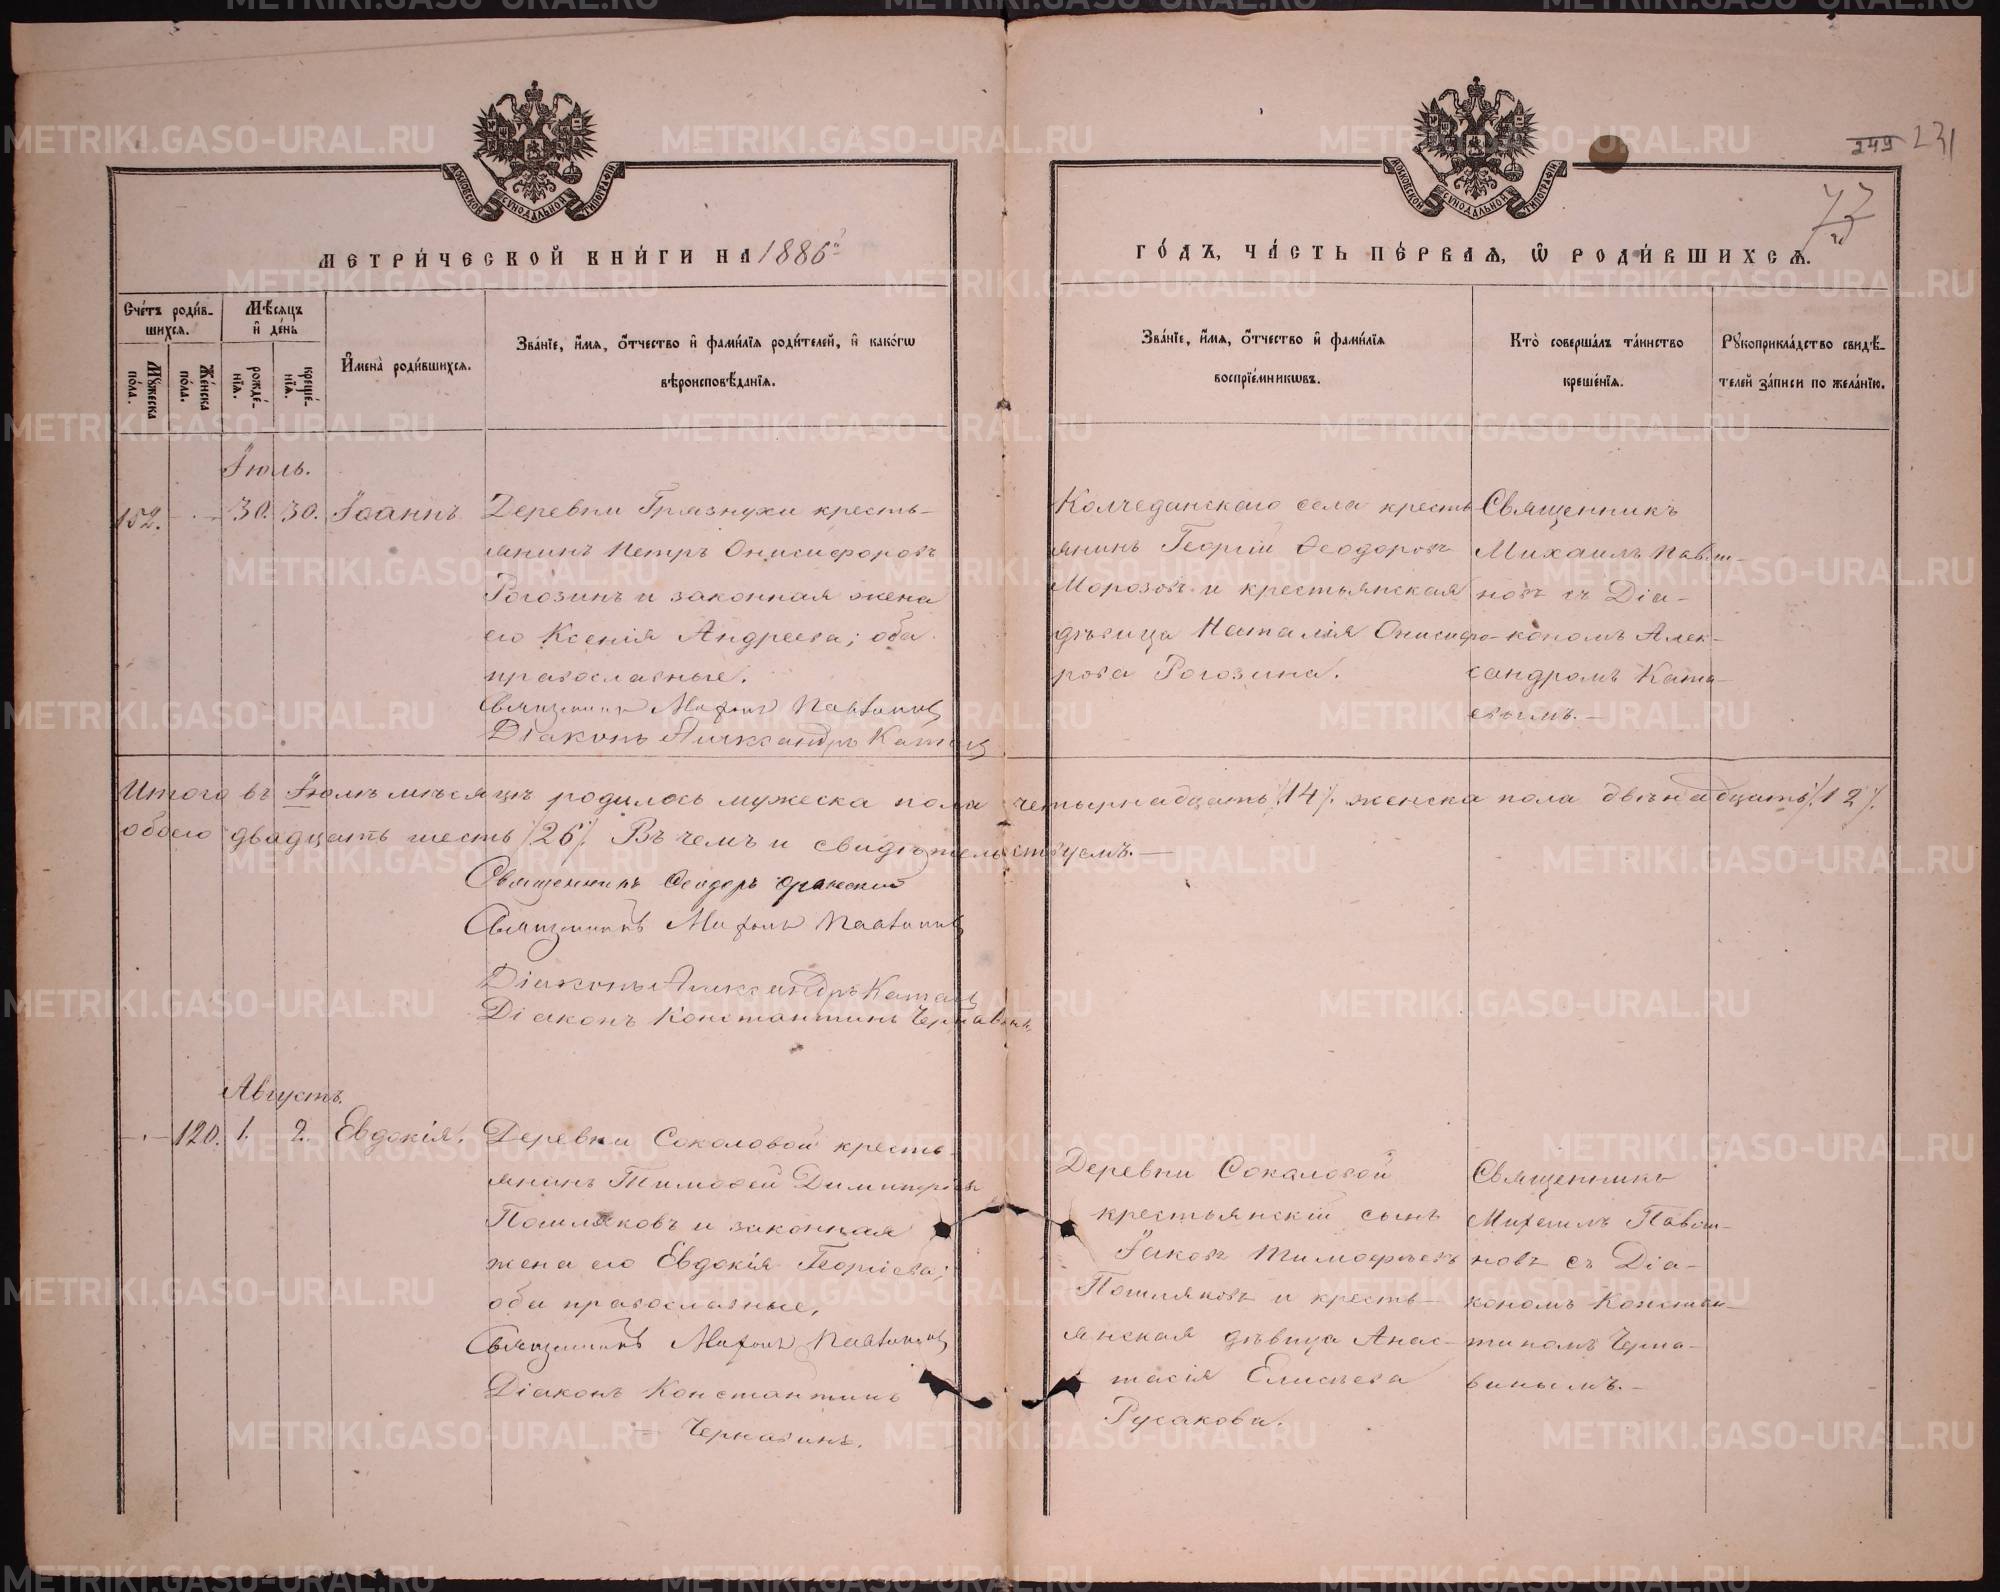 249 231
МОСКОВСКОЙ СѴНОДАЛЬНОЙ ТИПОГРАФІИ
МОСКОВСКОЙ СѴНОДАЛЬНОЙ ТИПОГРАФІИ
МЕТРИ́ЧЕСКОЙ КНИ́ГИ НА 1886й
ГО́ДЪ, ЧА́СТЬ ПЕ́РВАѦ, Ѽ РОДИ́ВШИХСѦ.
Сче́тъ роди́вшихся.
Мѣ́сяцъ и де́нь
Мꙋжеска по́ла.
Же́нска по́ла.
рожде́нїя.
креще́нїя.
Имена̀ роди́вшихся.
Зва́нїе, и́мя, ѻ́тчество и фами́лїя роди́телей, и како́гѡ
вѣроисповѣ́данїя.
Зва́нїе, и́мя, ѻ́тчество и фами́лїя
воспрїе́мникѡвъ.
Кто̀ соверша́лъ та́инство
креще́нїя.
Рꙋкоприкла́дство свидѣ́-
телей за́писи по жела́нїю.
Іюль.
152. - - 30. 30. Іоаннъ
Деревни Грязнухи кресть-
янинъ Петръ Онисифоровъ
Рогозинъ и законная жена
его Ксенія Андреева; оба
православные.
Священникъ Михаилъ Павтиновъ
Діаконъ Александръ Катаевъ
Колчеданскаго села кресть
янинъ Георгій Ѳеодоровъ
Морозовъ и крестьянская
дѣвица Наталія Онисифо-
рова Рогозина.
Священникъ
Михаилъ Павти-
новъ съ Діа-
кономъ Алек-
сандромъ Ката-
евымъ.-
Итого въ Іюлѣ мѣсяцѣ родилось мужеска пола четырнадцать /14/. женска пола двѣнадцать /12/.
обоего двадцать шесть /26/. Въ чемъ и свидѣтельствуемъ.-
Священникъ Ѳеодоръ
Священникъ Михаилъ Павтиновъ
Діаконъ Александръ Катаевъ
Діаконъ Константинъ Чернавинъ
Августъ.
- . - 120. 1. 2. Евдокія.
Деревни Соколовой кресть-
янинъ Тимоѳей Димитріевъ
Пошляковъ и законная
жена его Евдокія Георгіева;
оба православные,
Священникъ Михаилъ Павтиновъ
Діаконъ Константинъ
Чернавинъ.
Деревни Соколовой
крестьянскій сынъ
Іаковъ Тимофѣевъ
Пошляковъ и кресть-
янская дѣвица Анас-
тасія Елисѣева
Русакова.
Священникъ
Михаилъ Павти-
новъ съ Діа-
кономъ Констан-
тиномъ Черна-
винымъ.-
METRIKI.GASO-URAL.RU